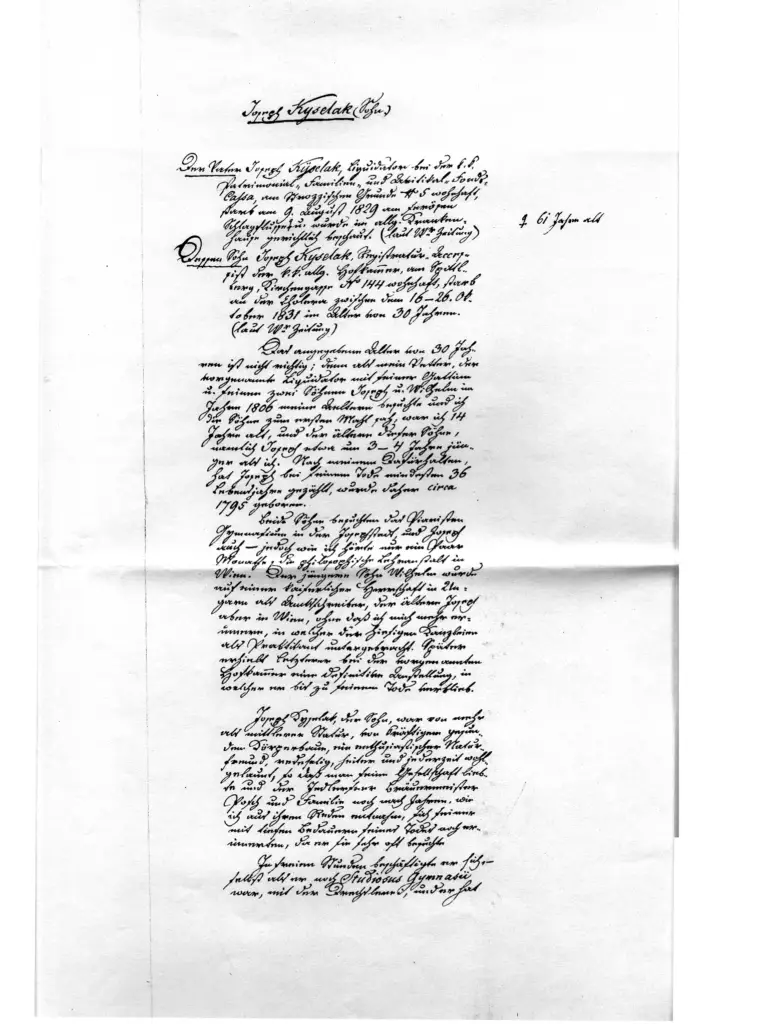 Joseph Kyselak (Sohn)
Der Vater Joseph Kyselak, Liquidator bei der k. k.
Patrimonial-, Familien- und Avitikal-Fonds-
Cassa, am Strozzischen Grunde № 5 wohnhaft,
starb am 9. August 1829 am serösen
Schlagflusse u. wurde im allg. Kranken-
hause gerichtlich beschaut. (laut Wr Zeitung)
♀ 61 Jahre alt
Dessen Sohn Joseph Kyselak, Registratur-Acces-
sist der k. k. allg. Hofkammer, am Spittl-
berg, Kirchengasse № 144 wohnhaft, starb
an der Cholera zwischen dem 16–26. Ok-
tober 1831 im Alter von 30 Jahren.
(laut Wr Zeitung)
Das angegebene Alter von 30 Jah-
ren ist nicht richtig; denn als mein Vetter, der
vorgenannte Liquidator mit seiner Gattin
u. seinen zwei Söhnen Joseph u. Wilhelm im
Jahre 1806 meine Aeltern besuchte und ich
die Söhne zum ersten Mahl sah, war ich 14
Jahre alt, und der ältere dieser Söhne,
nämlich Joseph etwa um 3–4 Jahre jün-
ger als ich. Nach meinem Dafürhalten,
hat Joseph bei seinem Tode mindestens 36
Lebensjahre gezählt, wurde daher circa
1795 geboren.
Beide Söhne besuchten das Piaristen
Gymnasium in der Josephstadt, und Joseph
auch – jedoch wie ich hörte nur ein Paar
Monathe, die philosophische Lehranstalt in
Wien. Der jüngere Sohn Wilhelm wurde
auf einer kaiserlicher Herrschaft in Un-
garn als Amtsschreiber, der ältere Joseph
aber in Wien, ohne daß ich mich mehr er-
innere, in welcher der hiesigen Kanzleien
als Praktikant untergebracht. Später
erhielt Letzterer bei der vorgenannten
Hofkammer eine definitive Anstellung, in
welcher er bis zu seinem Tode verblieb.
Joseph Kyselak, der Sohn, war von mehr
als mittlerer Statur, von kräftigem gesun-
dem Körperbaue, ein enthusiastischer Natur-
freund, redselig, heiter und jederzeit wohl-
gelaunt, so daß man seine Gesellschaft lieb-
te und der Jedlerseer Bräuermeister
Bosch und Familie noch nach Jahren, wie
ich aus ihren Reden entnahm, sich seiner
mit tiefem Bedauern seines Todes noch er-
innerten, da er sie sehr oft besuchte
In freien Stunden beschäftigte er sich,–
selbst als er noch Studiosus Gymnasii
war, mit der Drechslerei, und er hat